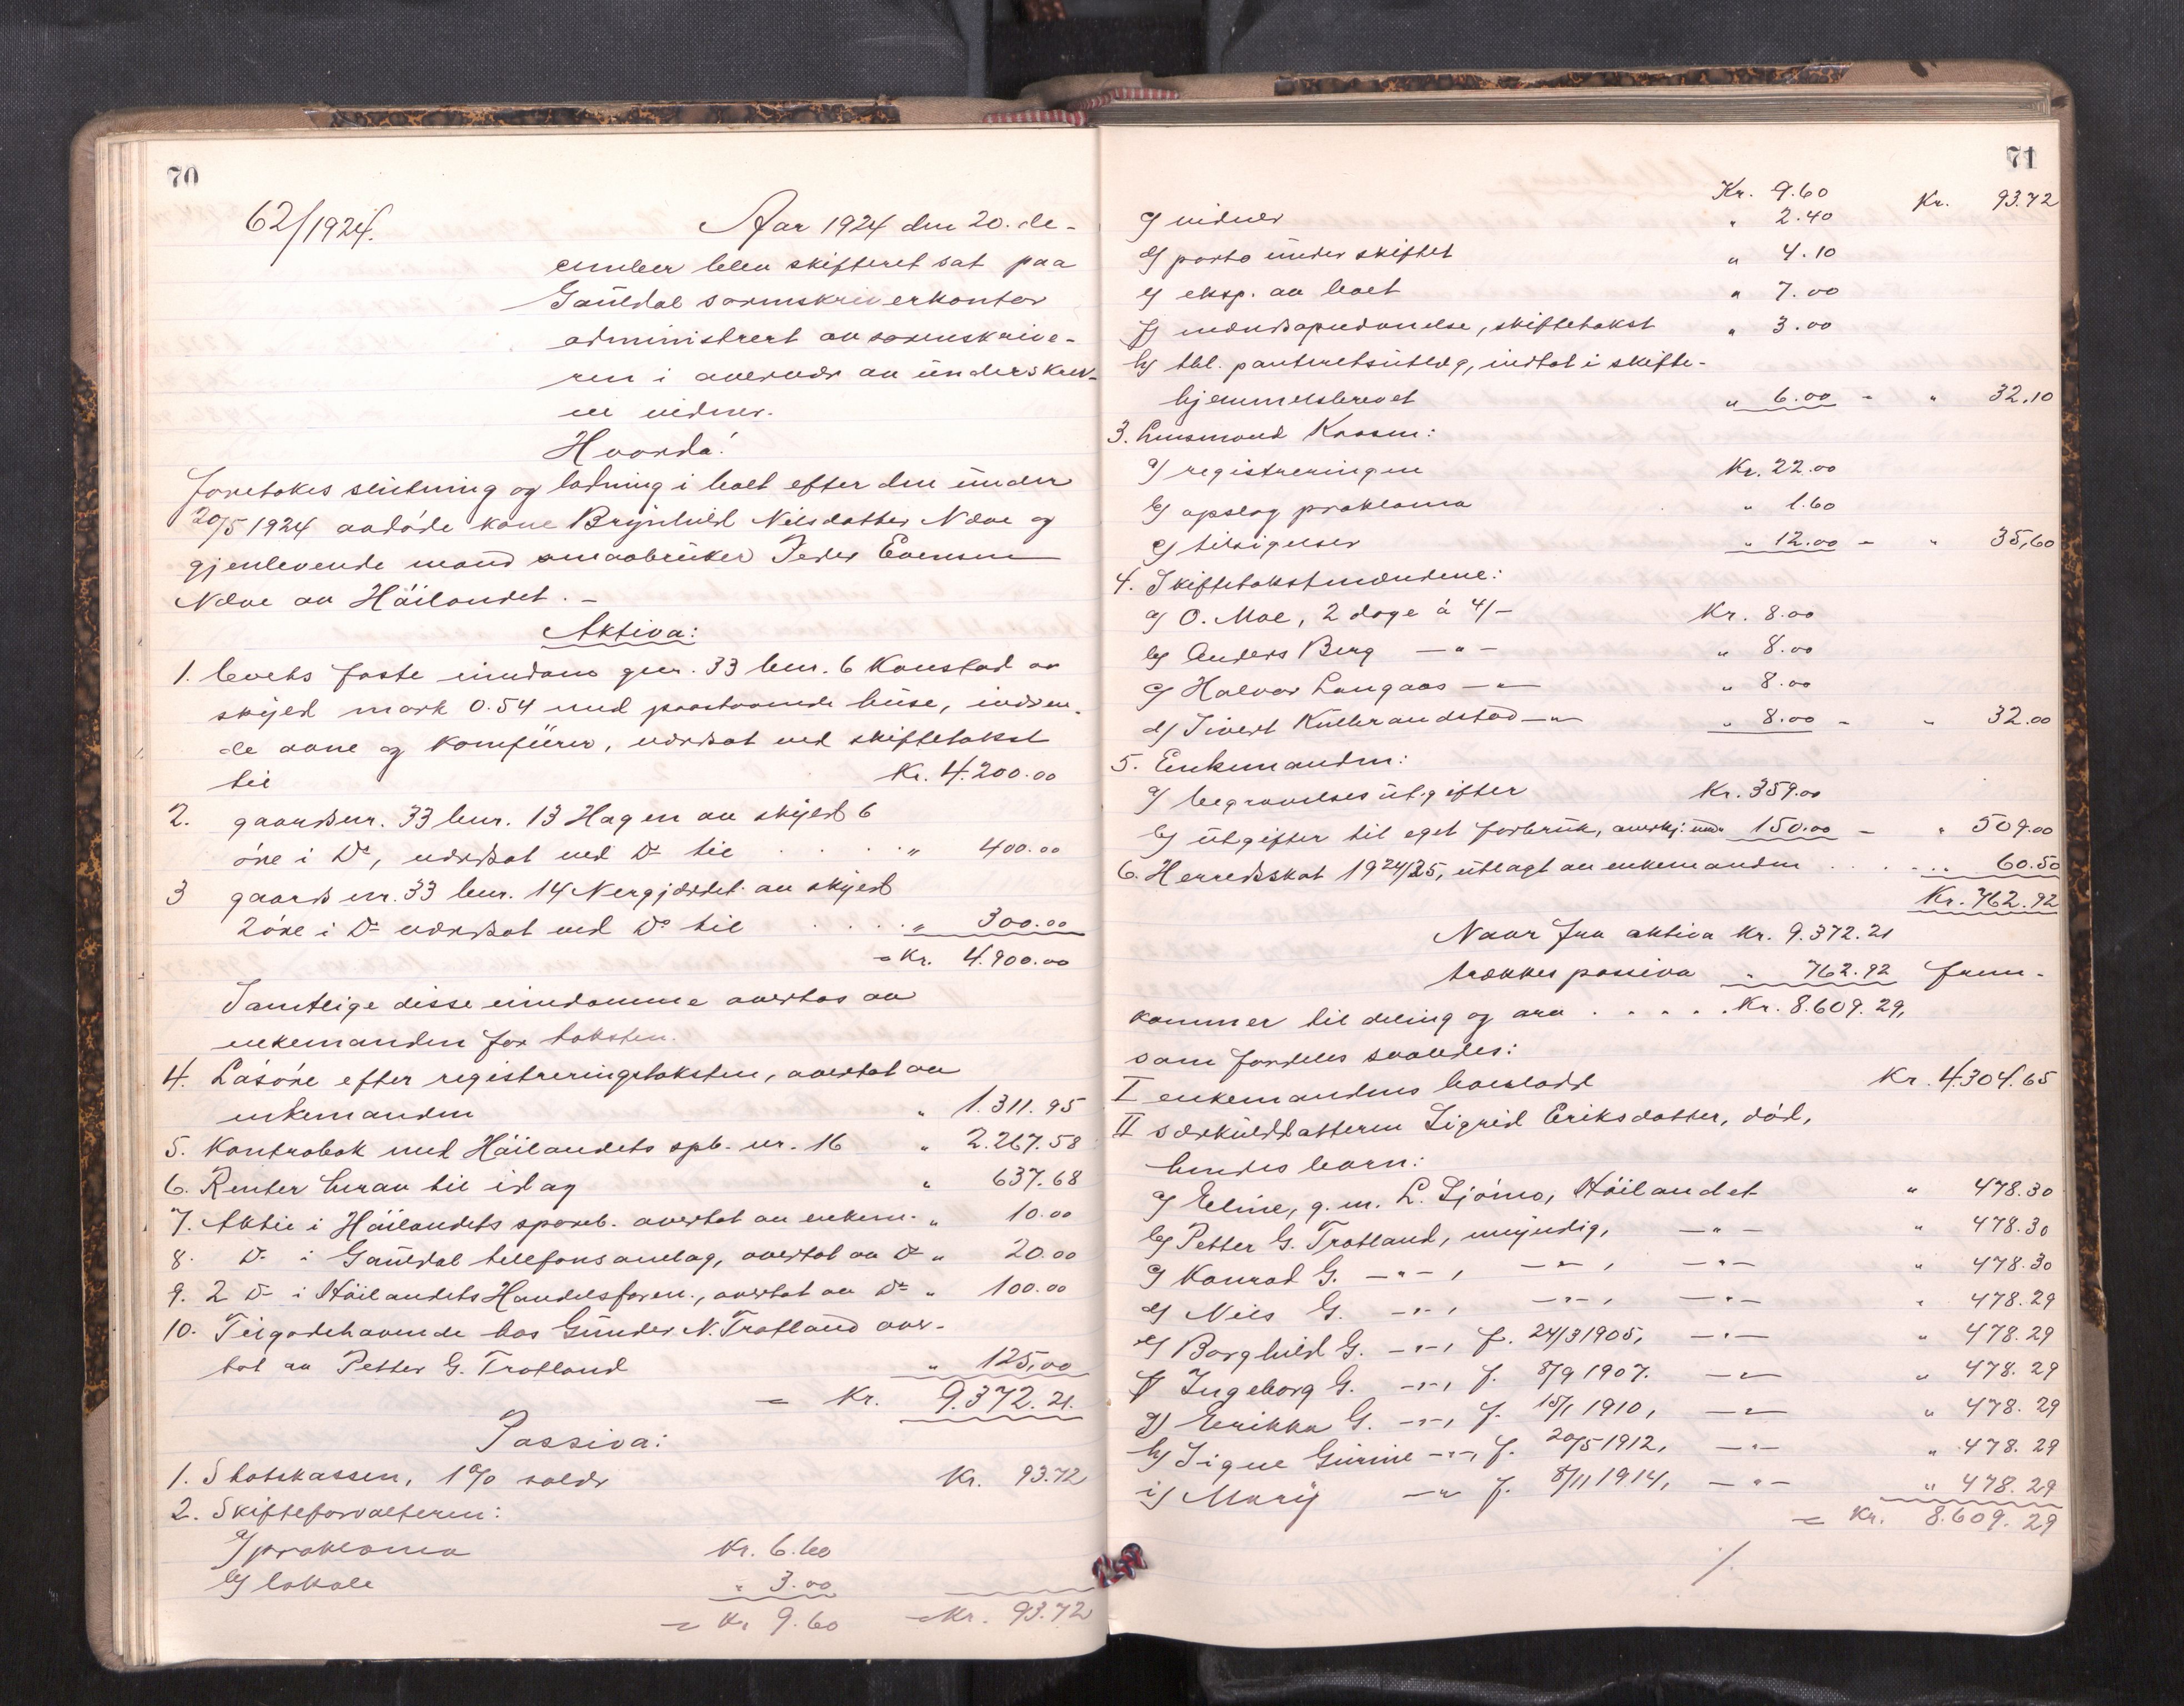 70
62/1924.
Aar 1924 den 20. de-
cember blev skifteret sat paa
Gauldal sorenskriverkontor
administrert av sorenskrive-
ren i overvær av underskrev-
ne vidner.
Hvorda!
Foretokes slutning og lodning i boet efter den under
20/5 1924 avdøde kone Brynhild Nilsdatter Næve og
gjenlevende mand smaabruker Peder Evensen
Næve av Høilandet. -
Aktiva:
1. boets faste eiendom gnr. 33 bnr. 6 Konstad av
skyld mark 0.54 med paastaaende huse, indven-
de ovne og komfürer, værdsat ved skiftetakst
til Kr. 4.200.00
2. gaardsnr. 33 bnr. 13 Hagen av skyld 6
øre i Do, værdsat ved Do til . . . . " 400.00
3 gaards nr. 33 bnr. 14 Nergjærdet av skyld
2 øre i Do værdsat ved Do til . . . . " 300.00
= Kr. 4.900.00
Samtlige disse eiendomme overtas av
enkemanden for taksten.
4. Løsøre efter registreringstaksten, overtat av
enkemanden " 1.311.95
5. Kontrabok med Høilandets spb. nr. 16 " 2.267.58
6. Renter herav til idag " 637.68
7. Aktie i Høilandets spareb. overtat av enkem. " 10.00
8. Do i Gauldal telefonsamlag, overtat av Do " 20.00
9. 2 Do i Høilandets Handelsforen., overtat av Do " 100.00
10. Tilgodehavende hos Gunder N. Trotland over-
tat av Petter G. Trotland " 125,00
= Kr. 9.372.21.
Passiva:
1. Statskassen, 1% solds Kr. 93.72
2. Skifteforvalteren:
a) proklama Kr. 6.60
b) lokale " 3.00
= Kr 9.60 = Kr. 93.72
71
Kr. 9.60 Kr. 93.72
c) vidner " 2.40
d) porto under skiftet " 4.10
e) eksp. av boet " 7.00
f) mændsopnævnelse, skiftetakst " 3.00
h) tbl. panteretsutlæg, indtat i skifte-
hjemmelsbrevet " 6.00 = " 32.10
3. Lensmand Kaasen:
a) registreringen Kr. 22.00
b) opslag proklama " 1.60
c) tilsigelser " 12.00 = " 35,60
4. Skiftetakstmændene:
a) O. Moe, 2 dage á 4/- Kr. 8.00
b) Anders Berg — " — " 8.00
c) Halvor Langaas — " — " 8.00
d) Sivert Kulbrandstad — " — " 8.00 = " 32.00
5. Enkemanden:
a) begravelses utgifter Kr. 359.00
b) utgifter til eget forbruk, anerkj. med 150.00 = " 509.00
6. Herredsskat 1924/25, utlagt av enkemanden . . . . . 60.50
Kr. 762.92
Naar fra aktiva Kr. 9.372.21
trækkes passiva " 762.92 frem-
kommer til deling og arv . . . . . Kr. 8.609.29,
som fordeles saaledes:
I enkemandens boeslodd Kr. 4.304.65
II særkuldsdatteren Sigrid Eriksdatter, død,
hendes barn:
a) Eline, g. m. L. Sjömo, Høilandet " 478.30
b) Petter G. Trotland, myndig, — " — " 478.30
c) Konrad G. — " — , — " — , — " — " 478.30
d) Nils G. — " — , — " — , — " — " 478.29
e) Borghild G. — " — , f. 24/3 1905, — " — " 478.29
f) Ingeborg G. — " — , f. 8/9 1907. — " — " 478.29
g) Erikka G. — " — , f. 15/1 1910, — " — " 478.29
h) Signe Gurine — " — , f. 20/5 1912, — " — " 478.29
i) Mary — " — f. 8/11 1914, — " — " 478.29
= Kr. 8.609.29
./.